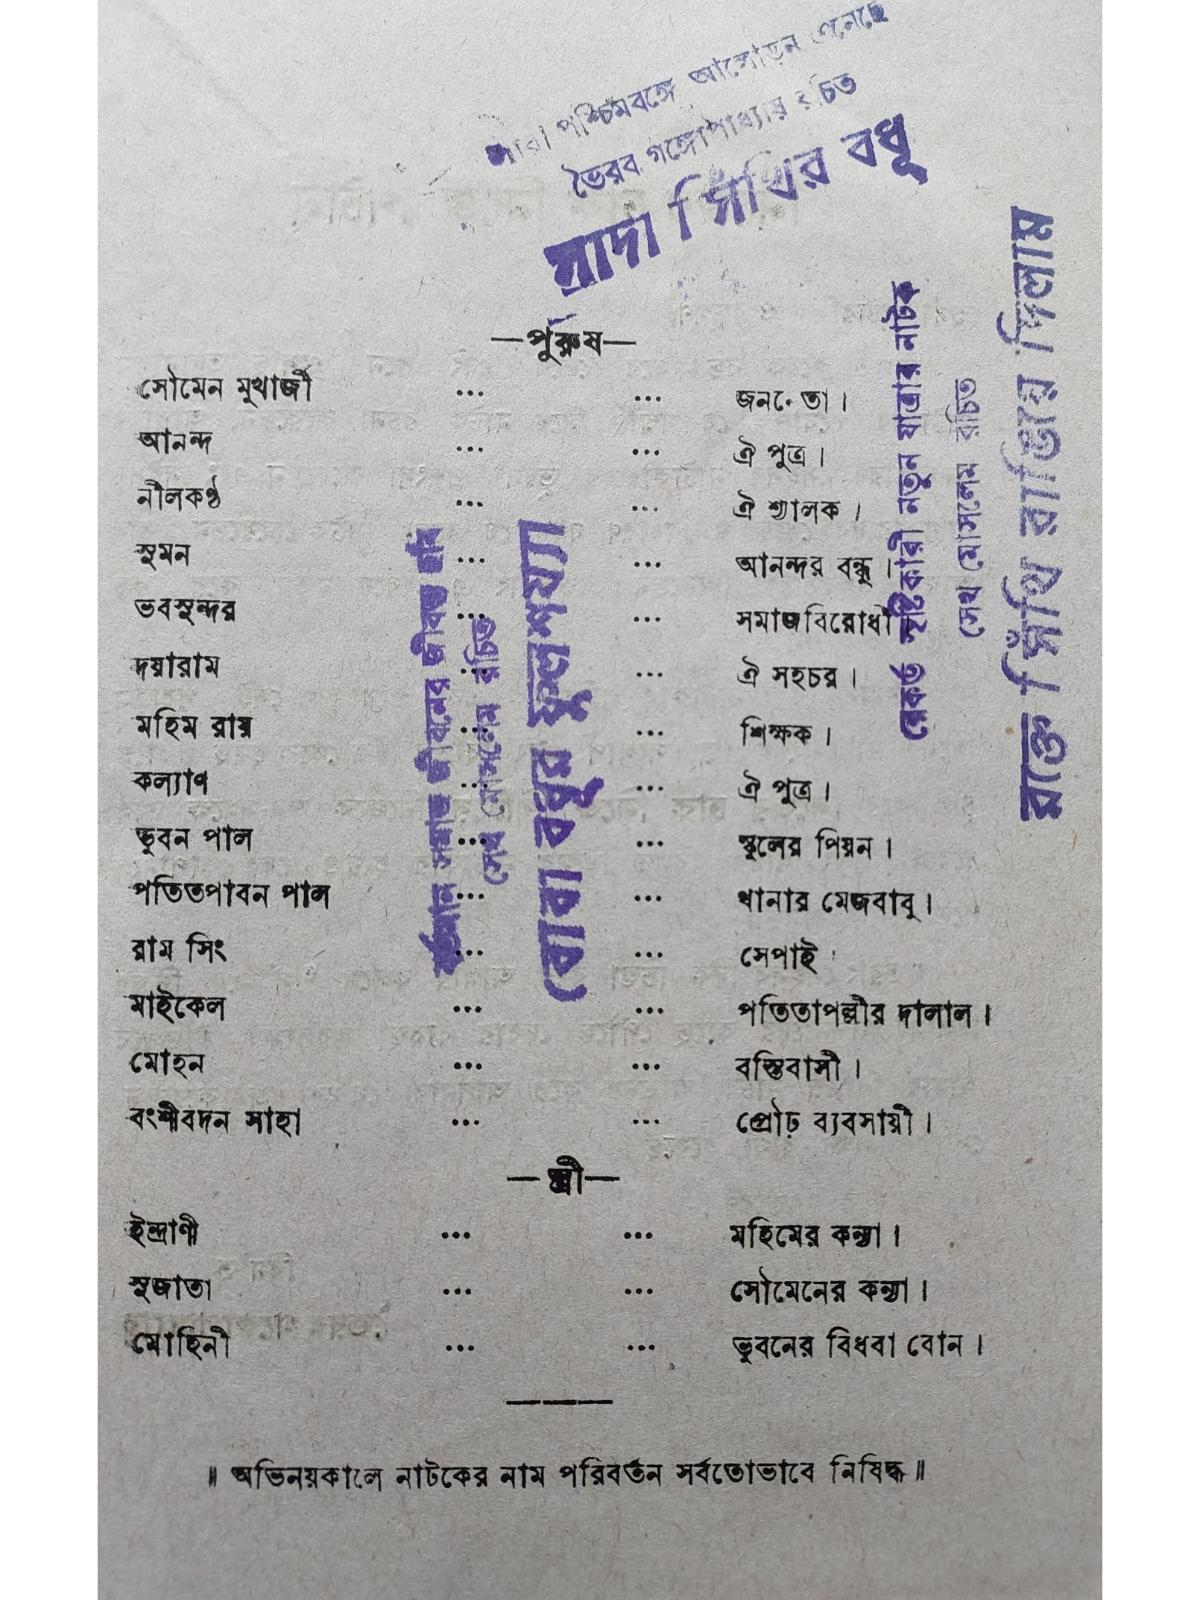 সারা পশ্চিমবঙ্গে আলোড়ন এনেছে
ভৈরব গঙ্গোপাধ্যায় রচিত
সাদা সিঁথির বধূ
—পুরুষ—
সৌমেন মুখার্জী ... ... জননেতা।
আনন্দ ... ... ঐ পুত্র।
নীলকণ্ঠ ... ... ঐ শ্যালক।
সুমন ... ... আনন্দর বন্ধু।
ভবসুন্দর ... ... সমাজবিরোধী
দয়ারাম ... ... ঐ সহচর।
মহিম রায় ... ... শিক্ষক।
কল্যাণ ... ... ঐ পুত্র।
ভুবন পাল ... ... স্কুলের পিয়ন।
পতিতপাবন পাল ... ... থানার মেজবাবু।
রাম সিং ... ... সেপাই
মাইকেল ... ... পতিতাপল্লীর দালাল।
মোহন ... ... বস্তিবাসী।
বংশীবদন সাহা ... ... প্রৌঢ় ব্যবসায়ী।
—স্ত্রী—
ইন্দ্রাণী ... ... মহিমের কন্যা।
সুজাতা ... ... সৌমেনের কন্যা।
মোহিনী ... ... ভুবনের বিধবা বোন।
॥ অভিনয়কালে নাটকের নাম পরিবর্তন সর্বতোভাবে নিষিদ্ধ ॥
বর্তমান সমাজ জীবনের জীবন্ত ছবি
সেখ মোসলেম রচিত
বোবা বধূর ফুলশয্যা
রেকর্ড সৃষ্টিকারী নতুন যাত্রার নাটক
সেখ মোসলেম রচিত
রক্তে সিঁথি রাঙিয়ে দিলাম